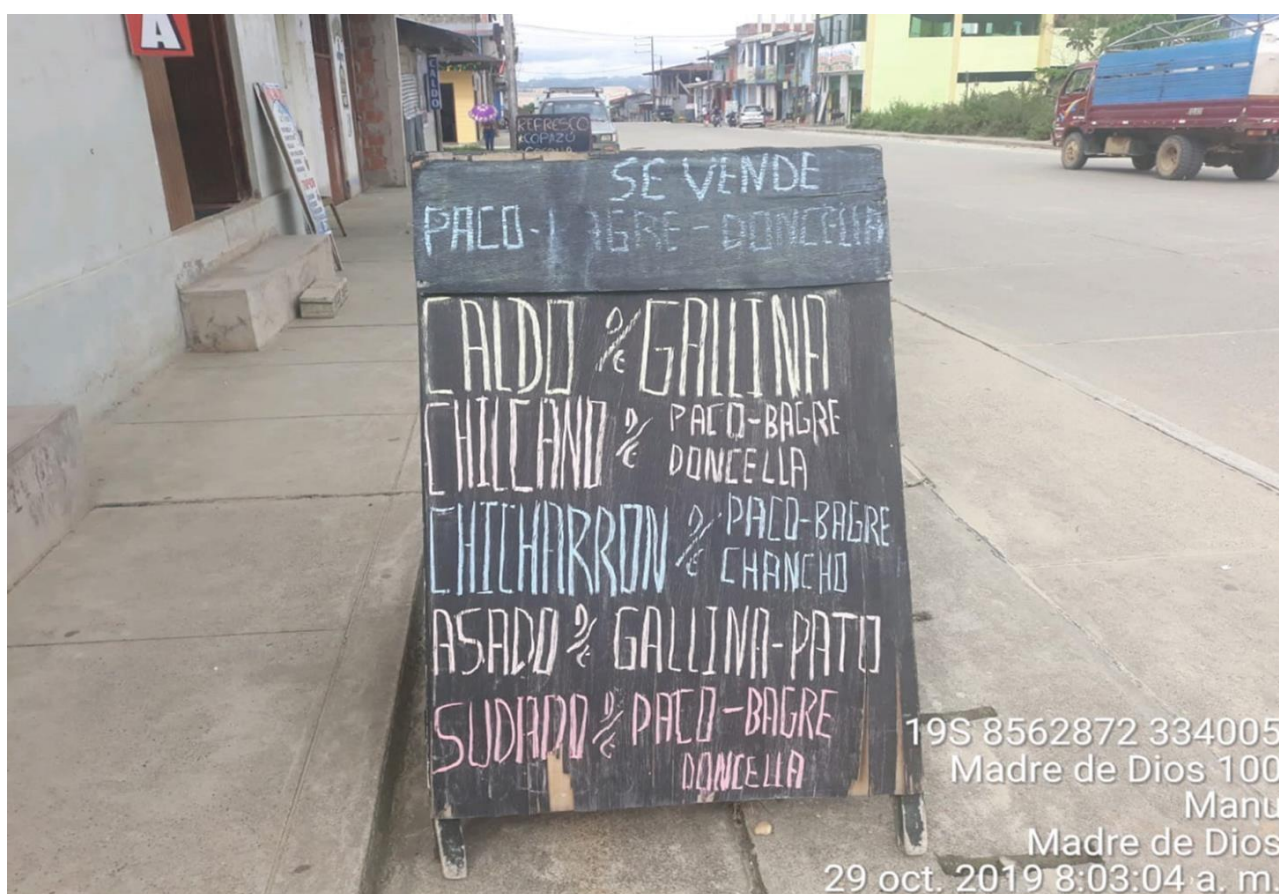 A
CALDO
REFRESCO
COPAZÚ
SE VENDE
PACO-BAGRE-DONCELLA
CALDO D/E GALLINA
CHILCANO D/E PACO-BAGRE
DONCELLA
CHICHARRON D/E PACO-BAGRE
CHANCHO
ASADO D/E GALLINA-PATO
SUDADO D/E PACO-BAGRE
DONCELLA
19S 8562872 334005
Madre de Dios 100
Manu
Madre de Dios
29 oct. 2019 8:03:04 a. m.